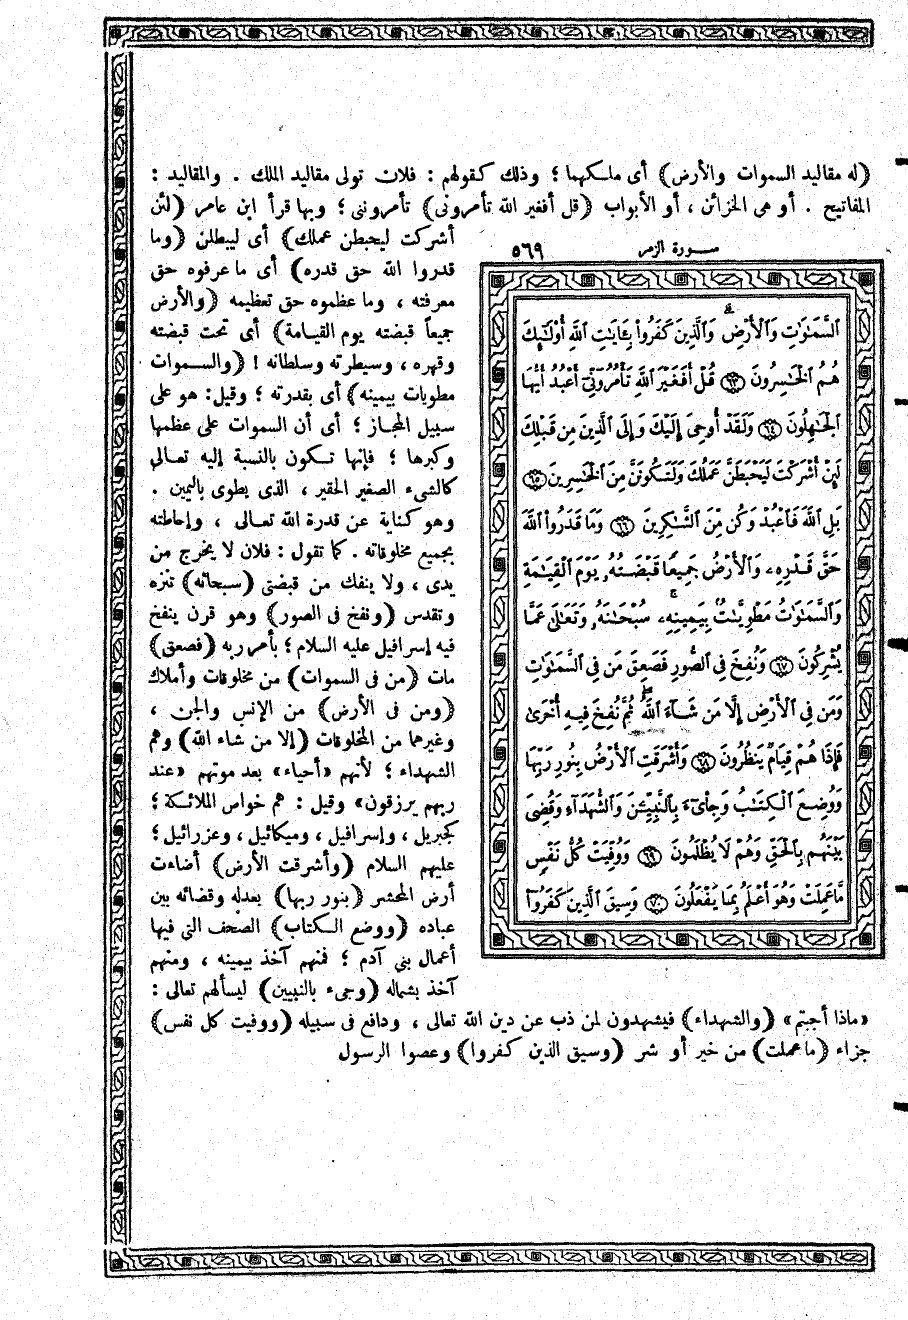 (له مقاليد السموات والأرض) أى ملكهما ؛ وذلك كقولهم : فلان تولى مقاليد الملك . والمقاليد :
المفاتيح . أو هى الخزائن ، أو الأبواب (قل أفغير الله تأمرونى) تأمروننى ؛ وبها قرأ ابن عامر (لئن
أشركت ليحبطن عملك) أى ليبطلن (وما
قدروا الله حق قدره) أى ما عرفوه حق
معرفته ، وما عظموه حق تعظيمه (والأرض
جميعاً قبضته يوم القيامة) أى تحت قبضته
وقهره ، وسيطرته وسلطانه ! (والسموات
مطويات بيمينه) أى بقدرته ؛ وقيل : هو على
سبيل المجاز ؛ أى أن السموات على عظمها
وكبرها ؛ فإنها تكون بالنسبة إليه تعالى
كالشىء الصغير الحقير ، الذى يطوى باليمين .
وهو كناية عن قدرة الله تعالى ، وإحاطته
بجميع مخلوقاته . كما تقول : فلان لا يخرج من
يدى ، ولا ينفك من قبضتى (سبحانه) تنزه
وتقدس (ونفخ فى الصور) وهو قرن ينفخ
فيه إسرافيل عليه السلام ؛ بأمر ربه (فصعق)
مات (من فى السموات) من مخلوقات وأملاك
(ومن فى الأرض) من الإنس والجن ،
وغيرهما من المخلوقات (إلا من شاء الله) وهم
الشهداء ؛ لأنهم «أحياء» بعد موتهم «عند
ربهم يرزقون» وقيل : هم خواص الملائكة ؛
كجبريل ، وإسرافيل ، وميكائيل ، وعزرائيل ؛
عليهم السلام (وأشرقت الأرض) أضاءت
أرض المحشر (بنور ربها) بعدله وقضائه بين
عباده (ووضع الكتاب) الصحف التى فيها
أعمال بنى آدم ؛ فمنهم آخذ بيمينه ، ومنهم
آخذ بشماله (وجىء بالنبيين) ليسألهم تعالى :
«ماذا أجبتم» (والشهداء) فيشهدون لمن ذب عن دين الله تعالى ، ودافع فى سبيله (ووفيت كل نفس)
جزاء (ما عملت) من خير أو شر (وسيق الذين كفروا) وعصوا الرسول
سورة الزمر ٥٦٩
السَّمَٰوَٰتِ وَالْأَرْضِ ۗ وَالَّذِينَ كَفَرُوا۟ بِـَٔايَٰتِ اللَّهِ أُو۟لَٰٓئِكَ
هُمُ الْخَٰسِرُونَ ٦٣ قُلْ أَفَغَيْرَ اللَّهِ تَأْمُرُوٓنِّىٓ أَعْبُدُ أَيُّهَا
الْجَٰهِلُونَ ٦٤ وَلَقَدْ أُوحِىَ إِلَيْكَ وَإِلَى الَّذِينَ مِن قَبْلِكَ
لَئِنْ أَشْرَكْتَ لَيَحْبَطَنَّ عَمَلُكَ وَلَتَكُونَنَّ مِنَ الْخَٰسِرِينَ ٦٥
بَلِ اللَّهَ فَاعْبُدْ وَكُن مِّنَ الشَّٰكِرِينَ ٦٦ وَمَا قَدَرُوا۟ اللَّهَ
حَقَّ قَدْرِهِۦ وَالْأَرْضُ جَمِيعًا قَبْضَتُهُۥ يَوْمَ الْقِيَٰمَةِ
وَالسَّمَٰوَٰتُ مَطْوِيَّٰتٌۢ بِيَمِينِهِۦ ۚ سُبْحَٰنَهُۥ وَتَعَٰلَىٰ عَمَّا
يُشْرِكُونَ ٦٧ وَنُفِخَ فِى الصُّورِ فَصَعِقَ مَن فِى السَّمَٰوَٰتِ
وَمَن فِى الْأَرْضِ إِلَّا مَن شَآءَ اللَّهُ ۖ ثُمَّ نُفِخَ فِيهِ أُخْرَىٰ
فَإِذَا هُمْ قِيَامٌ يَنظُرُونَ ٦٨ وَأَشْرَقَتِ الْأَرْضُ بِنُورِ رَبِّهَا
وَوُضِعَ الْكِتَٰبُ وَجِا۟ىٓءَ بِالنَّبِيِّـۧنَ وَالشُّهَدَآءِ وَقُضِىَ
بَيْنَهُم بِالْحَقِّ وَهُمْ لَا يُظْلَمُونَ ٦٩ وَوُفِّيَتْ كُلُّ نَفْسٍ
مَّا عَمِلَتْ وَهُوَ أَعْلَمُ بِمَا يَفْعَلُونَ ٧٠ وَسِيقَ الَّذِينَ كَفَرُوٓا۟